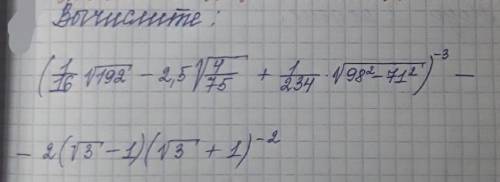 Вычислите:
(1/16 √192 − 2,5 √(4/75) + 1/234 · √(98² − 71²))⁻³ −
− 2(√3 − 1)(√3 + 1)⁻²